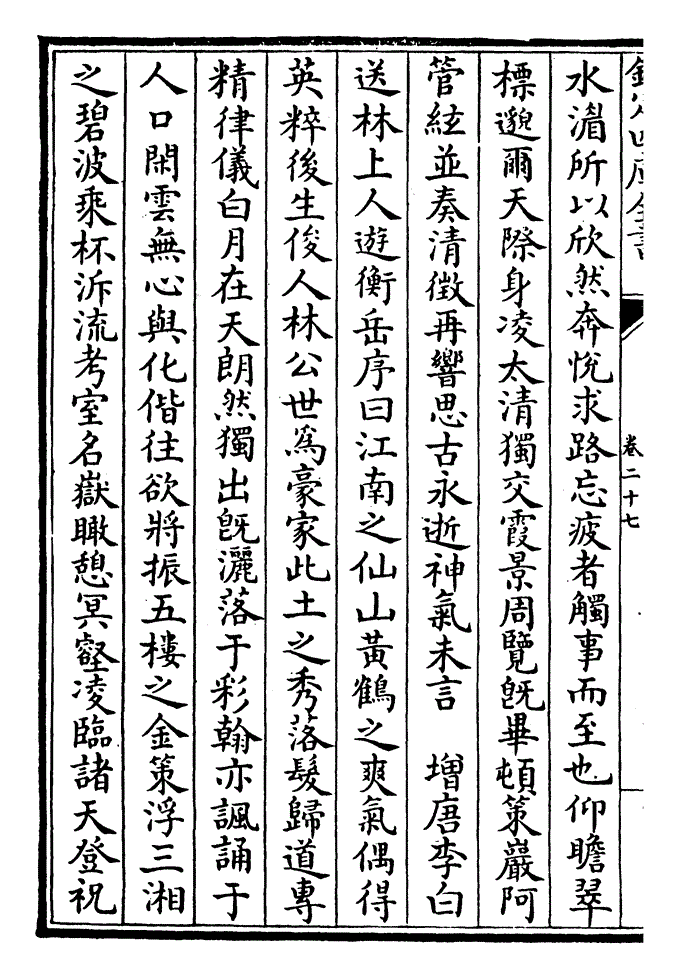 欽定四庫全書
卷二十七
水湄所以欣然奔悅求路忘疲者觸事而至也仰瞻翠
標邈爾天際身凌太清獨交霞景周覽旣畢頓策巖阿
管絃並奏清徴再響思古永逝神氣未言　增唐李白
送林上人遊衡岳序曰江南之仙山黃鶴之爽氣偶得
英粹後生俊人林公世爲豪家此土之秀落髮歸道專
精律儀白月在天朗然獨出旣灑落于彩翰亦諷誦于
人口閑雲無心與化偕往欲將振五樓之金策浮三湘
之碧波乘杯泝流考室名嶽瞰憩冥壑凌臨諸天登祝